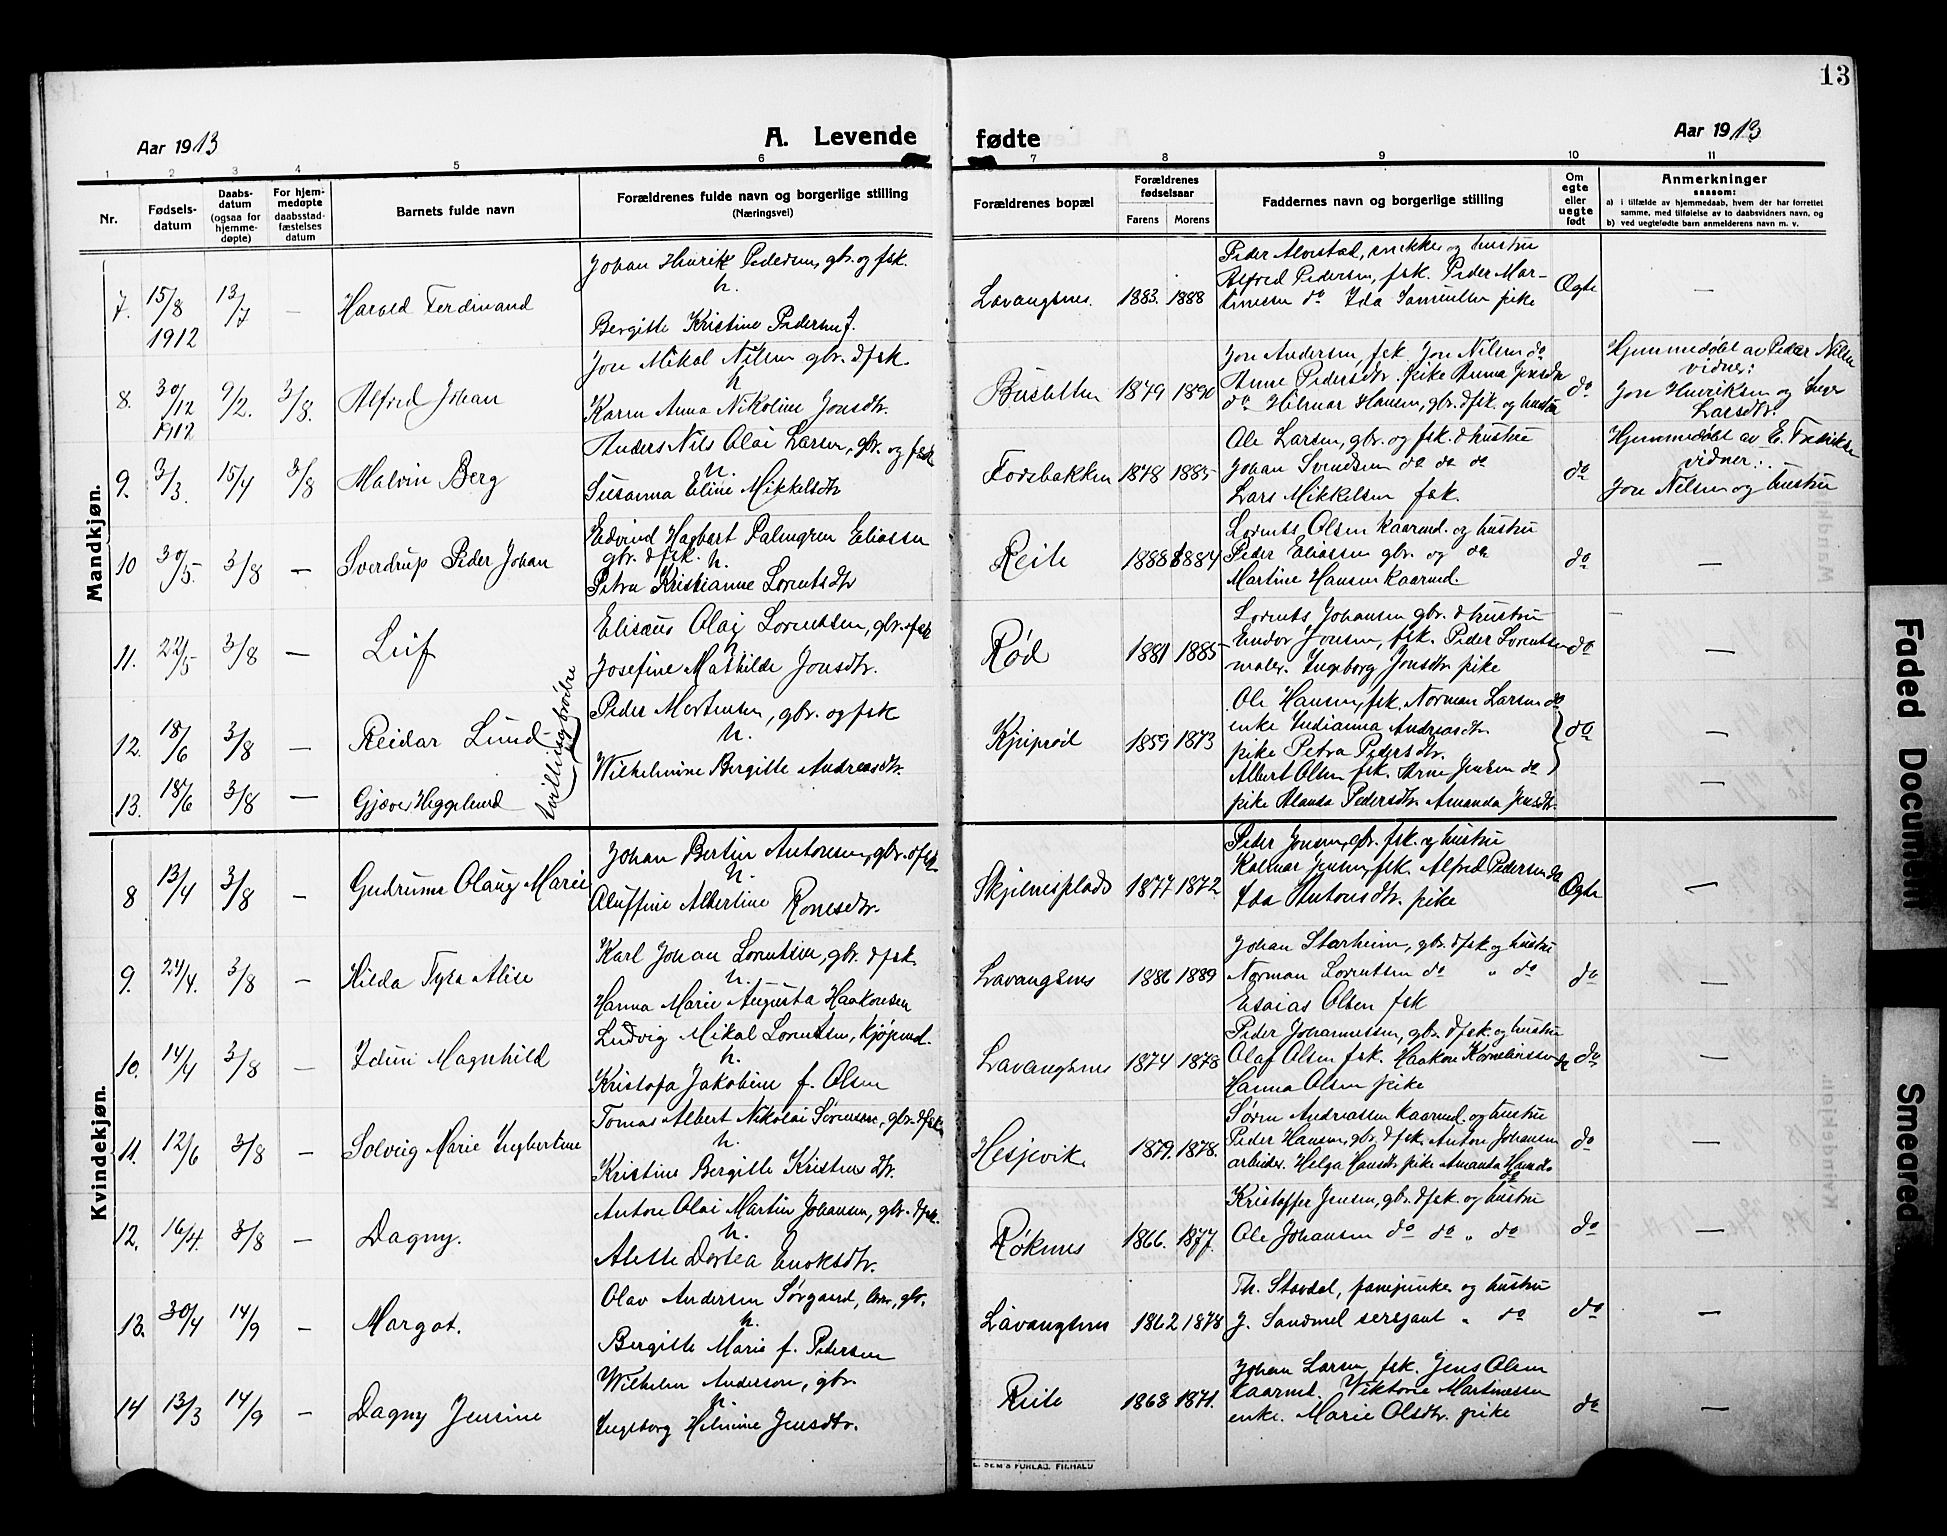 13
Aar 1913
A. Levende
fødte
Aar 1913
1 2 3 4 5 6 7 8 9 10 11
Nr.
Fødsels-
datum
Daabs-
datum
(ogsaa for
hjemme-
døpte)
For hjem-
medøpte
daabsstad-
fæstelses
datum
Barnets fulde navn
Forældrenes fulde navn og borgerlige stilling
(Næringsvei)
Forældrenes bopæl
Forældrenes
fødselsaar
Farens Morens
Faddernes navn og borgerlige stilling
Om
egte
eller
uegte
født
Anmerkninger
saasom:
a) i tilfælde av hjemmedaab, hvem der har forrettet
samme, med tilføielse av to daabsvidners navn, og
b) ved uegtefødte barn anmelderens navn m. v.
Mandkjøn.
7. 15/8 1912 13/7 — Harald Ferdinand
Johan Henrik Pedersen, gbr. og fsk.
h.
Bergitte Kristine Pedersen f.
Lavangsnes. 1883. 1888
Peder Alvestad, snekker og hustru
Alfred Pedersen, fsk. Peder Mar-
tinesen do Ida Samuelsen pike
Ægte —
8. 30/12 1912 9/2. 3/8. Alfred Johan
Jon Mikal Nilsen gbr. & fsk.
h
Karen Anna Nikoline Jonsdtr.
1849 1890
Jon Andersen, fsk. Jon Nilsen do
Anne Pedersdtr. pike Anna Jensdtr
do Hilmar Hansen, gbr. & fsk. og hustru
do
Hjemmedøbt av Peder Nilsen
vidner:
Jon Henriksen og Inger
Larsdtr.
9. 3/3. 15/4 3/8 Malvin Berg
Anders Nils Olai Larsen, gbr. og fsk
h.
Susanna Eline Mikkelsdtr
Fodsbakken 1878 1885
Ole Larsen, gbr. og fsk. & hustru
Johan Svendsen do do do
Lars Mikkelsen fsk.
do
Hjemmedøbt av E. Fredriksen
vidner:
Jon Nilsen og hustru
10 30/5. 3/8 — Sverdrup Peder Johan
Edvind Hagbart Palmgren Eliassen
gbr. & fsk. h.
Petra Kristianne Lorentsdtr
Reite 1888 1884
Lorents Olsen kaarmd. og hustru
Peder Eliassen gbr. og do
Martine Hansen kaarmd.
do —
11. 22/5 3/8 — Leif
Elisæus Olai Lorentsen, gbr. & fsk
h
Josefine Mathilde Jonsdtr.
Rød 1881 1885
Lorents Johansen gbr. & hustru
Endor Jonsen, fsk. Peder Lorentsen
maler. Ingeborg Jonsdtr pike
do —
12. 18/6 3/8 — Reidar Lund
Tvillingbrødre
Peder Mortensen, gbr. og fsk
h.
Wilhelmine Bergitte Andreasdtr.
Kjeiprød 1859 1873
Ole Hansen, fsk. Norman Larsen do
enke Indianna Andreasdtr
pike Petra Pedersdtr.
do —
13. 18/6 3/8 — Gjæver Heggelund
Albert Olsen fsk. Arne Jensen do
pike Hansa Pedersdtr. Amanda Jensdtr.
—
Kvindekjøn.
8 13/4 3/8 — Gudrunn Olaug Marie
Johan Bertin Antonsen, gbr. & fsk.
h.
Oluffine Albertine Konesdtr.
Skjelnesplads 1877 1872.
Peder Jensen, gbr. fsk. og hustru
Kalmar Jensen, fsk. Alfred Pedersen do
Ida Antonsdtr. pike
Ægte —
9. 24/4. 3/8 — Hilda Tyra Alise
Karl Johan Lorentsen, gbr. & fsk.
h.
Hanna Marie Augusta Haakonsen
Lavangsnes 1886 1889
Johan Starheim, gbr. & fsk og hustru
Norman Lorentsen do " do
Esaias Olsen fsk
do —
10. 14/4 3/8 — Idun Magnhild
Ludvig Mikal Lorentsen, kjøpmd.
h.
Kristofa Jakobine f. Olsen
Lavangsnes 1874 1878
Peder Johannessen, gbr. & fsk. og hustru
Olaf Olsen fsk. Haakon Korneliussen do
Hanna Olsen pike
do —
11. 12/6 3/8 — Solveig Marie Ingbertine
Tomas Albert Nikolai Sørensen, gbr. & fsk.
h.
Kristine Bergitte Kristensdtr.
Hesjevik 1879. 1878.
Søren Andreassen kaarmd. og hustru
Peder Hansen, gbr. & fsk. Anton Johansen
arbeider. Helga Hansdtr pike Amanda Hansdtr
do
do —
12. 16/4. 3/8 — Dagny.
Anton Olai Martin Johansen, gbr. & fsk.
h.
Alette Dortea Enoksdtr.
Røkenes 1866. 1877.
Kristoffer Jensen, gbr. & fsk. og hustru
Ole Johansen do do " do
do —
13. 30/4 14/9 — Margot.
Olav Andersen Sørgaard, gbr.
h.
Bergitte Marie f. Pedersen
Lavangsnes 1862 1878
Th. Stordal, fanejunker og hustru
J. Sandmel sersjant " do
do —
14 13/3 14/9 — Dagny Jensine
Wilhelm Anderson, gbr.
h.
Ingeborg Helmine Jensdtr.
Reite 1868 1871.
Johan Larsen, fsk. Jens Olsen
kaarmd. Viktoria Martinessen
enke. Marie Olsdtr. pike
do —
E. SEM'S FORLAG, FR.HALD
Faded Document
Smeared